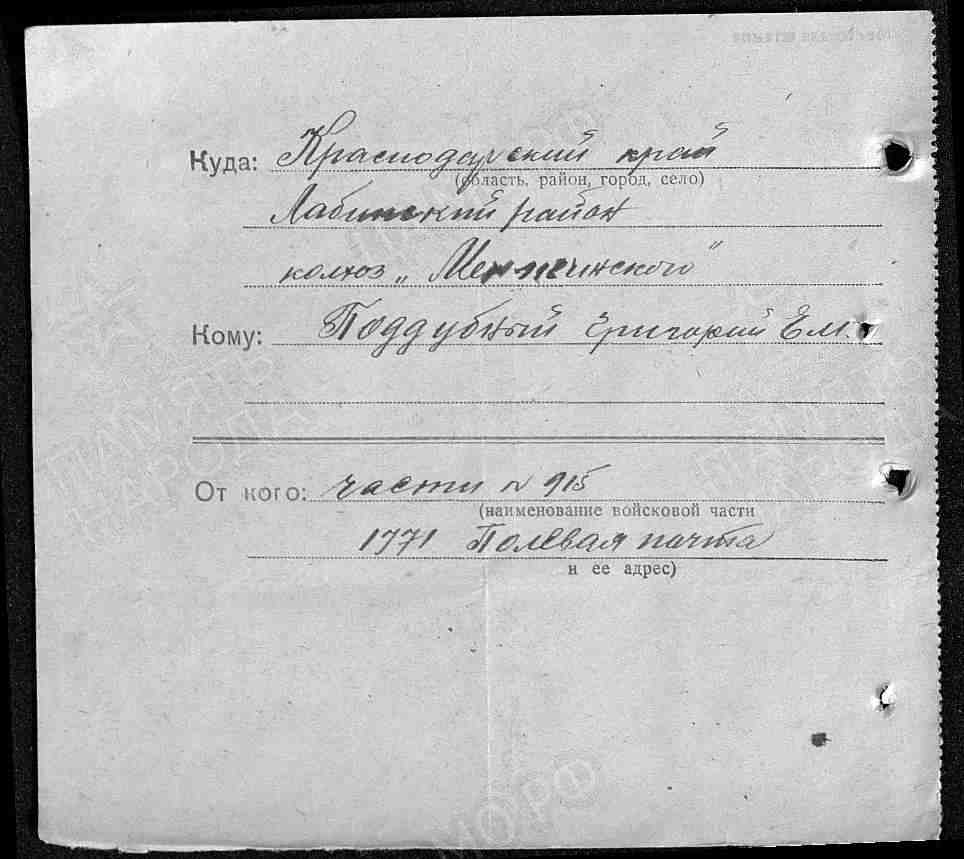 Куда: Краснодарский край
(область, район, город, село)
Лабинский район
колхоз „Менжинского"
Кому: Поддубный Григорий Ем.
От кого: части № 915
(наименование войсковой части
1771 Полевая почта
и ее адрес)
ПАМЯТЬ
НАРОДА
МО РФ